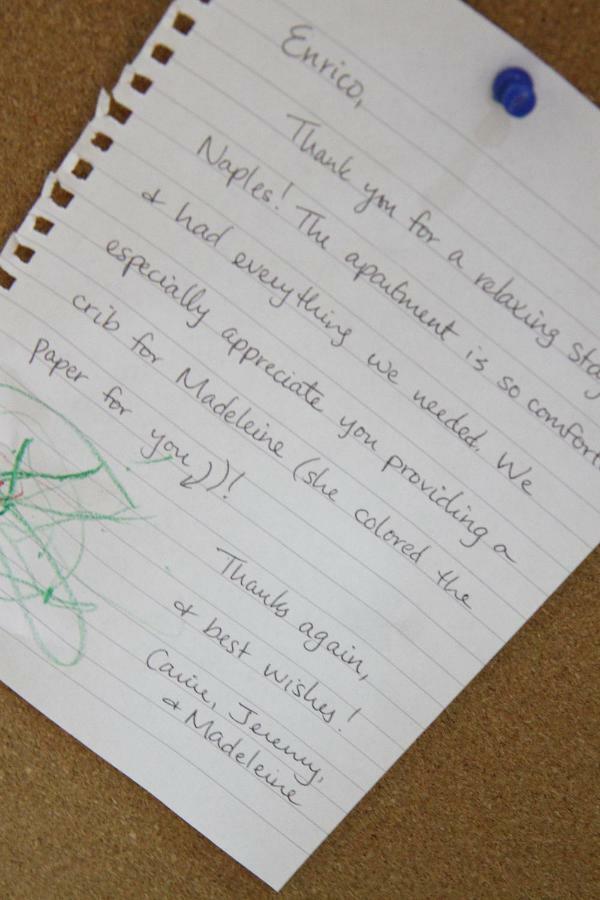 Enrico,
Thank you for a relaxing stay
Naples! The apartment is so comfort
& had everything we needed. We
especially appreciate you providing a
crib for Madeleine (she colored the
paper for you))!
Thanks again,
& best wishes!
Carrie, Jeremy,
& Madeleine